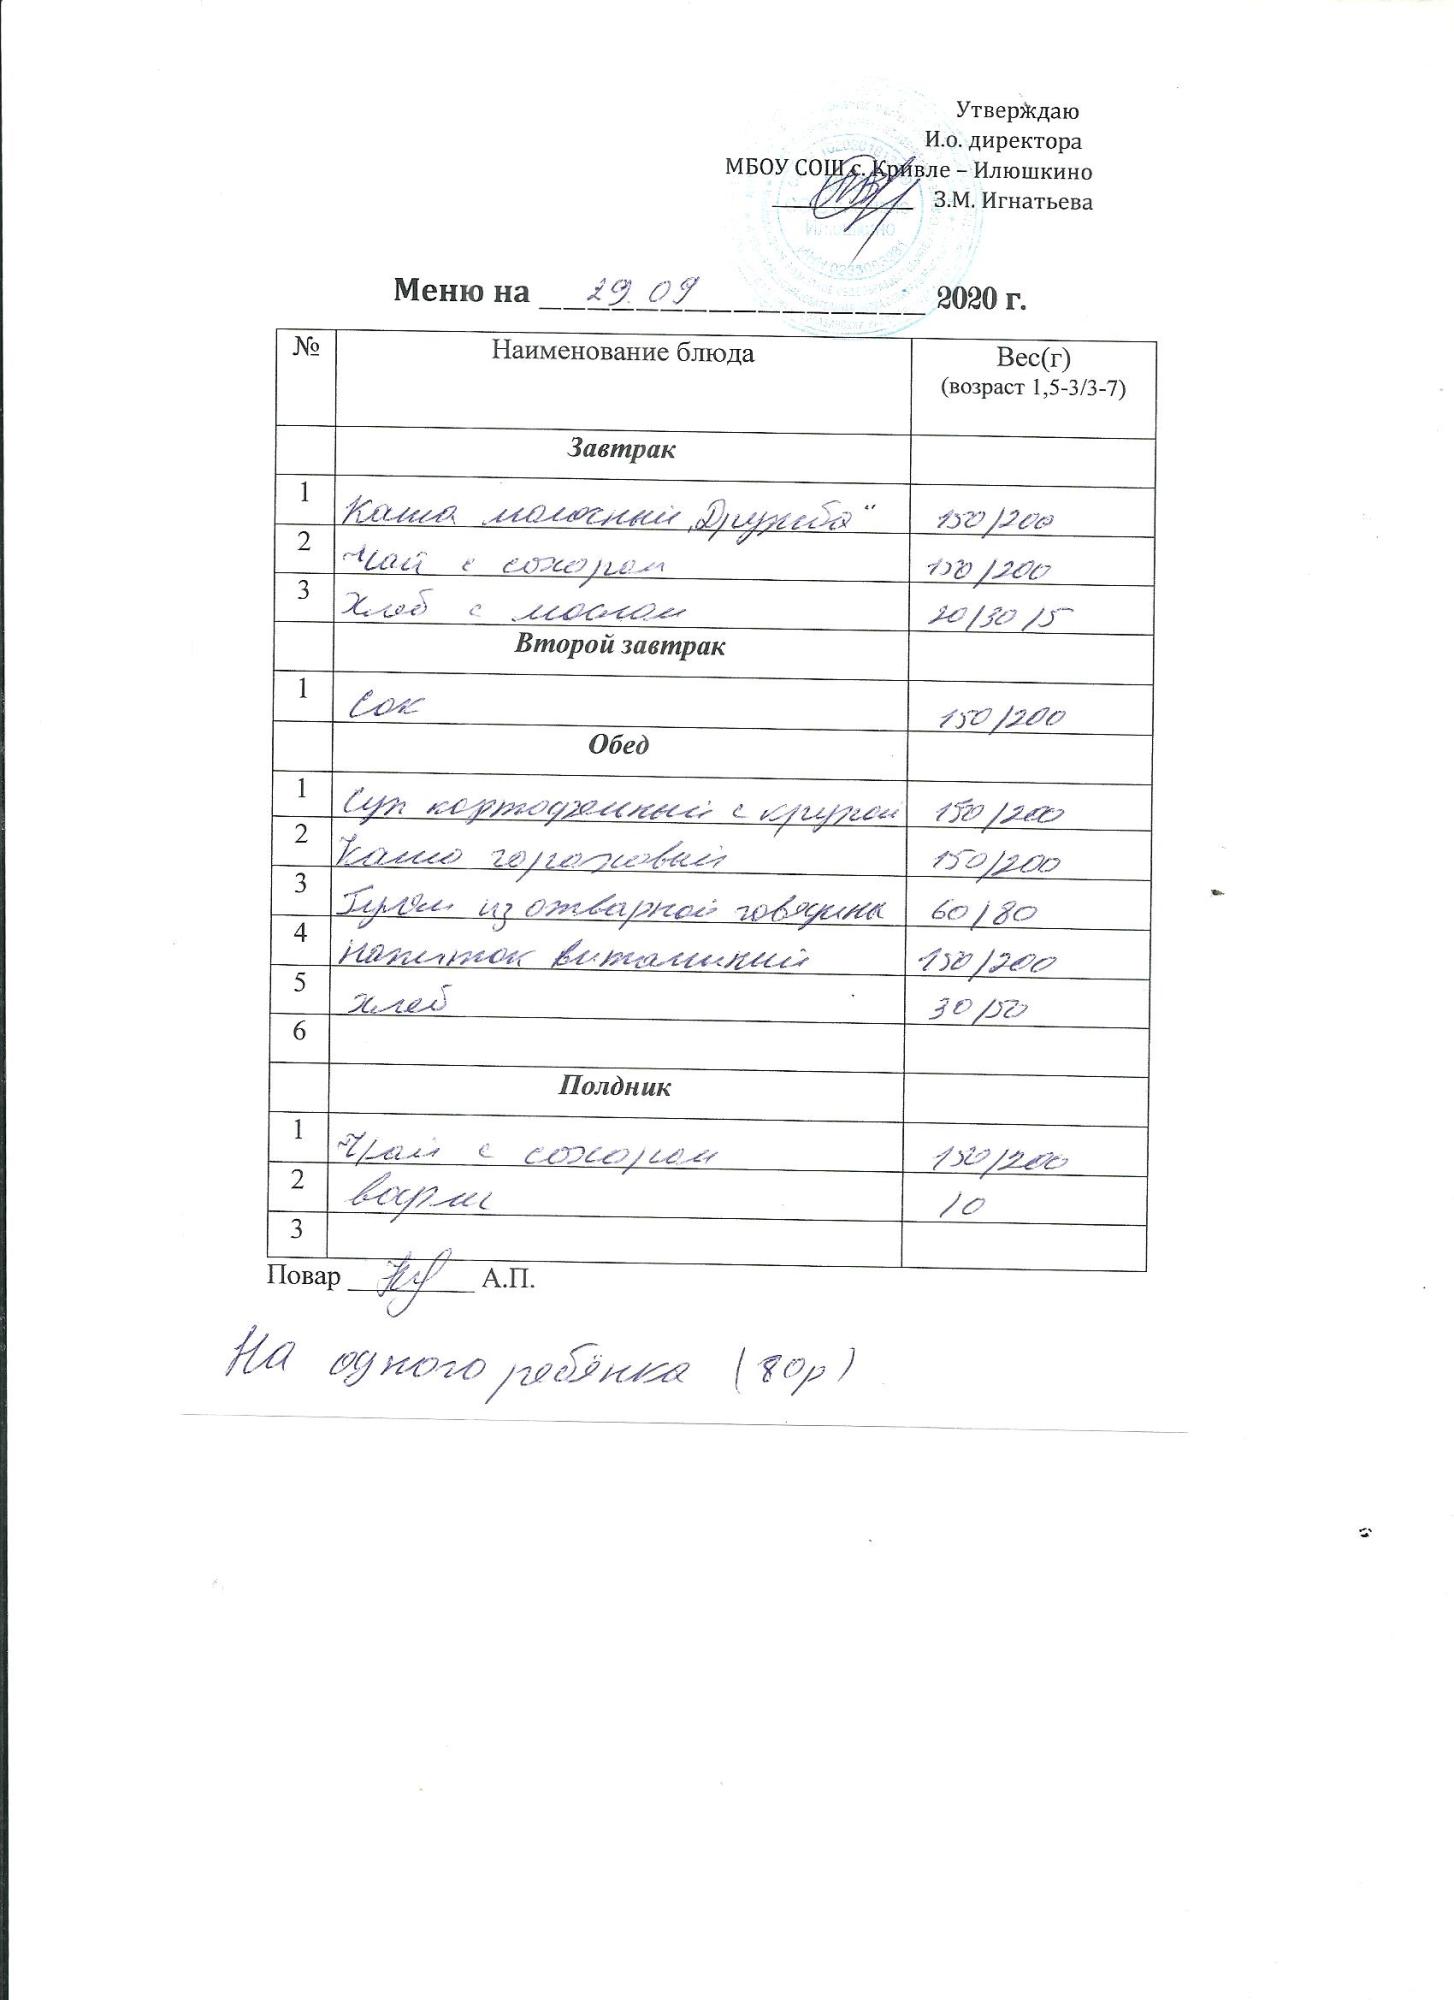 Утверждаю
И.о. директора
МБОУ СОШ с. Кривле – Илюшкино
З.М. Игнатьева
Меню на 29.09 2020 г.
№ Наименование блюда Вес(г)
(возраст 1,5-3/3-7)
Завтрак
1 Каша молочный „Дружба" 150/200
2 Чай с сахаром 150/200
3 Хлеб с маслом 20/30/5
Второй завтрак
1 Сок 150/200
Обед
1 Суп картофельный с крупой 150/200
2 Каша гороховый 150/200
3 Гуляш из отварной говядины 60/80
4 Напиток витаминный 150/200
5 хлеб 30/50
6
Полдник
1 Чай с сахаром 150/200
2 вафли 10
3
Повар А.П.
На одного ребёнка (80р)